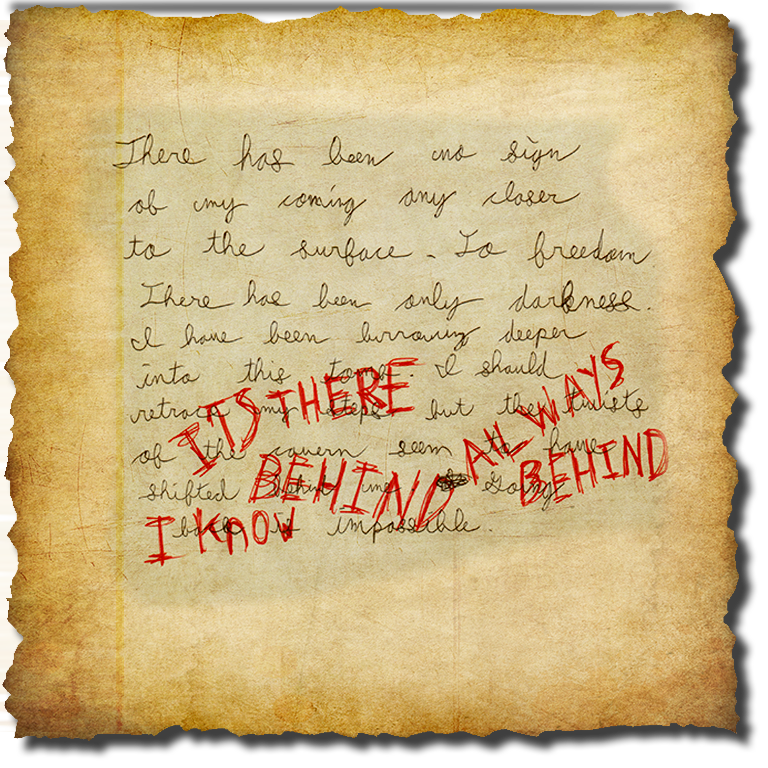 There has been no sign
of my coming any closer
to the surface. To freedom
There has been only darkness.
I have been burrowing deeper
into this tomb. I should
retrace my steps but the twists
of the cavern seem to have
shifted behind me. Going
back is impossible.
ITS THERE
BEHIND
ALWAYS
BEHIND
I KNOW